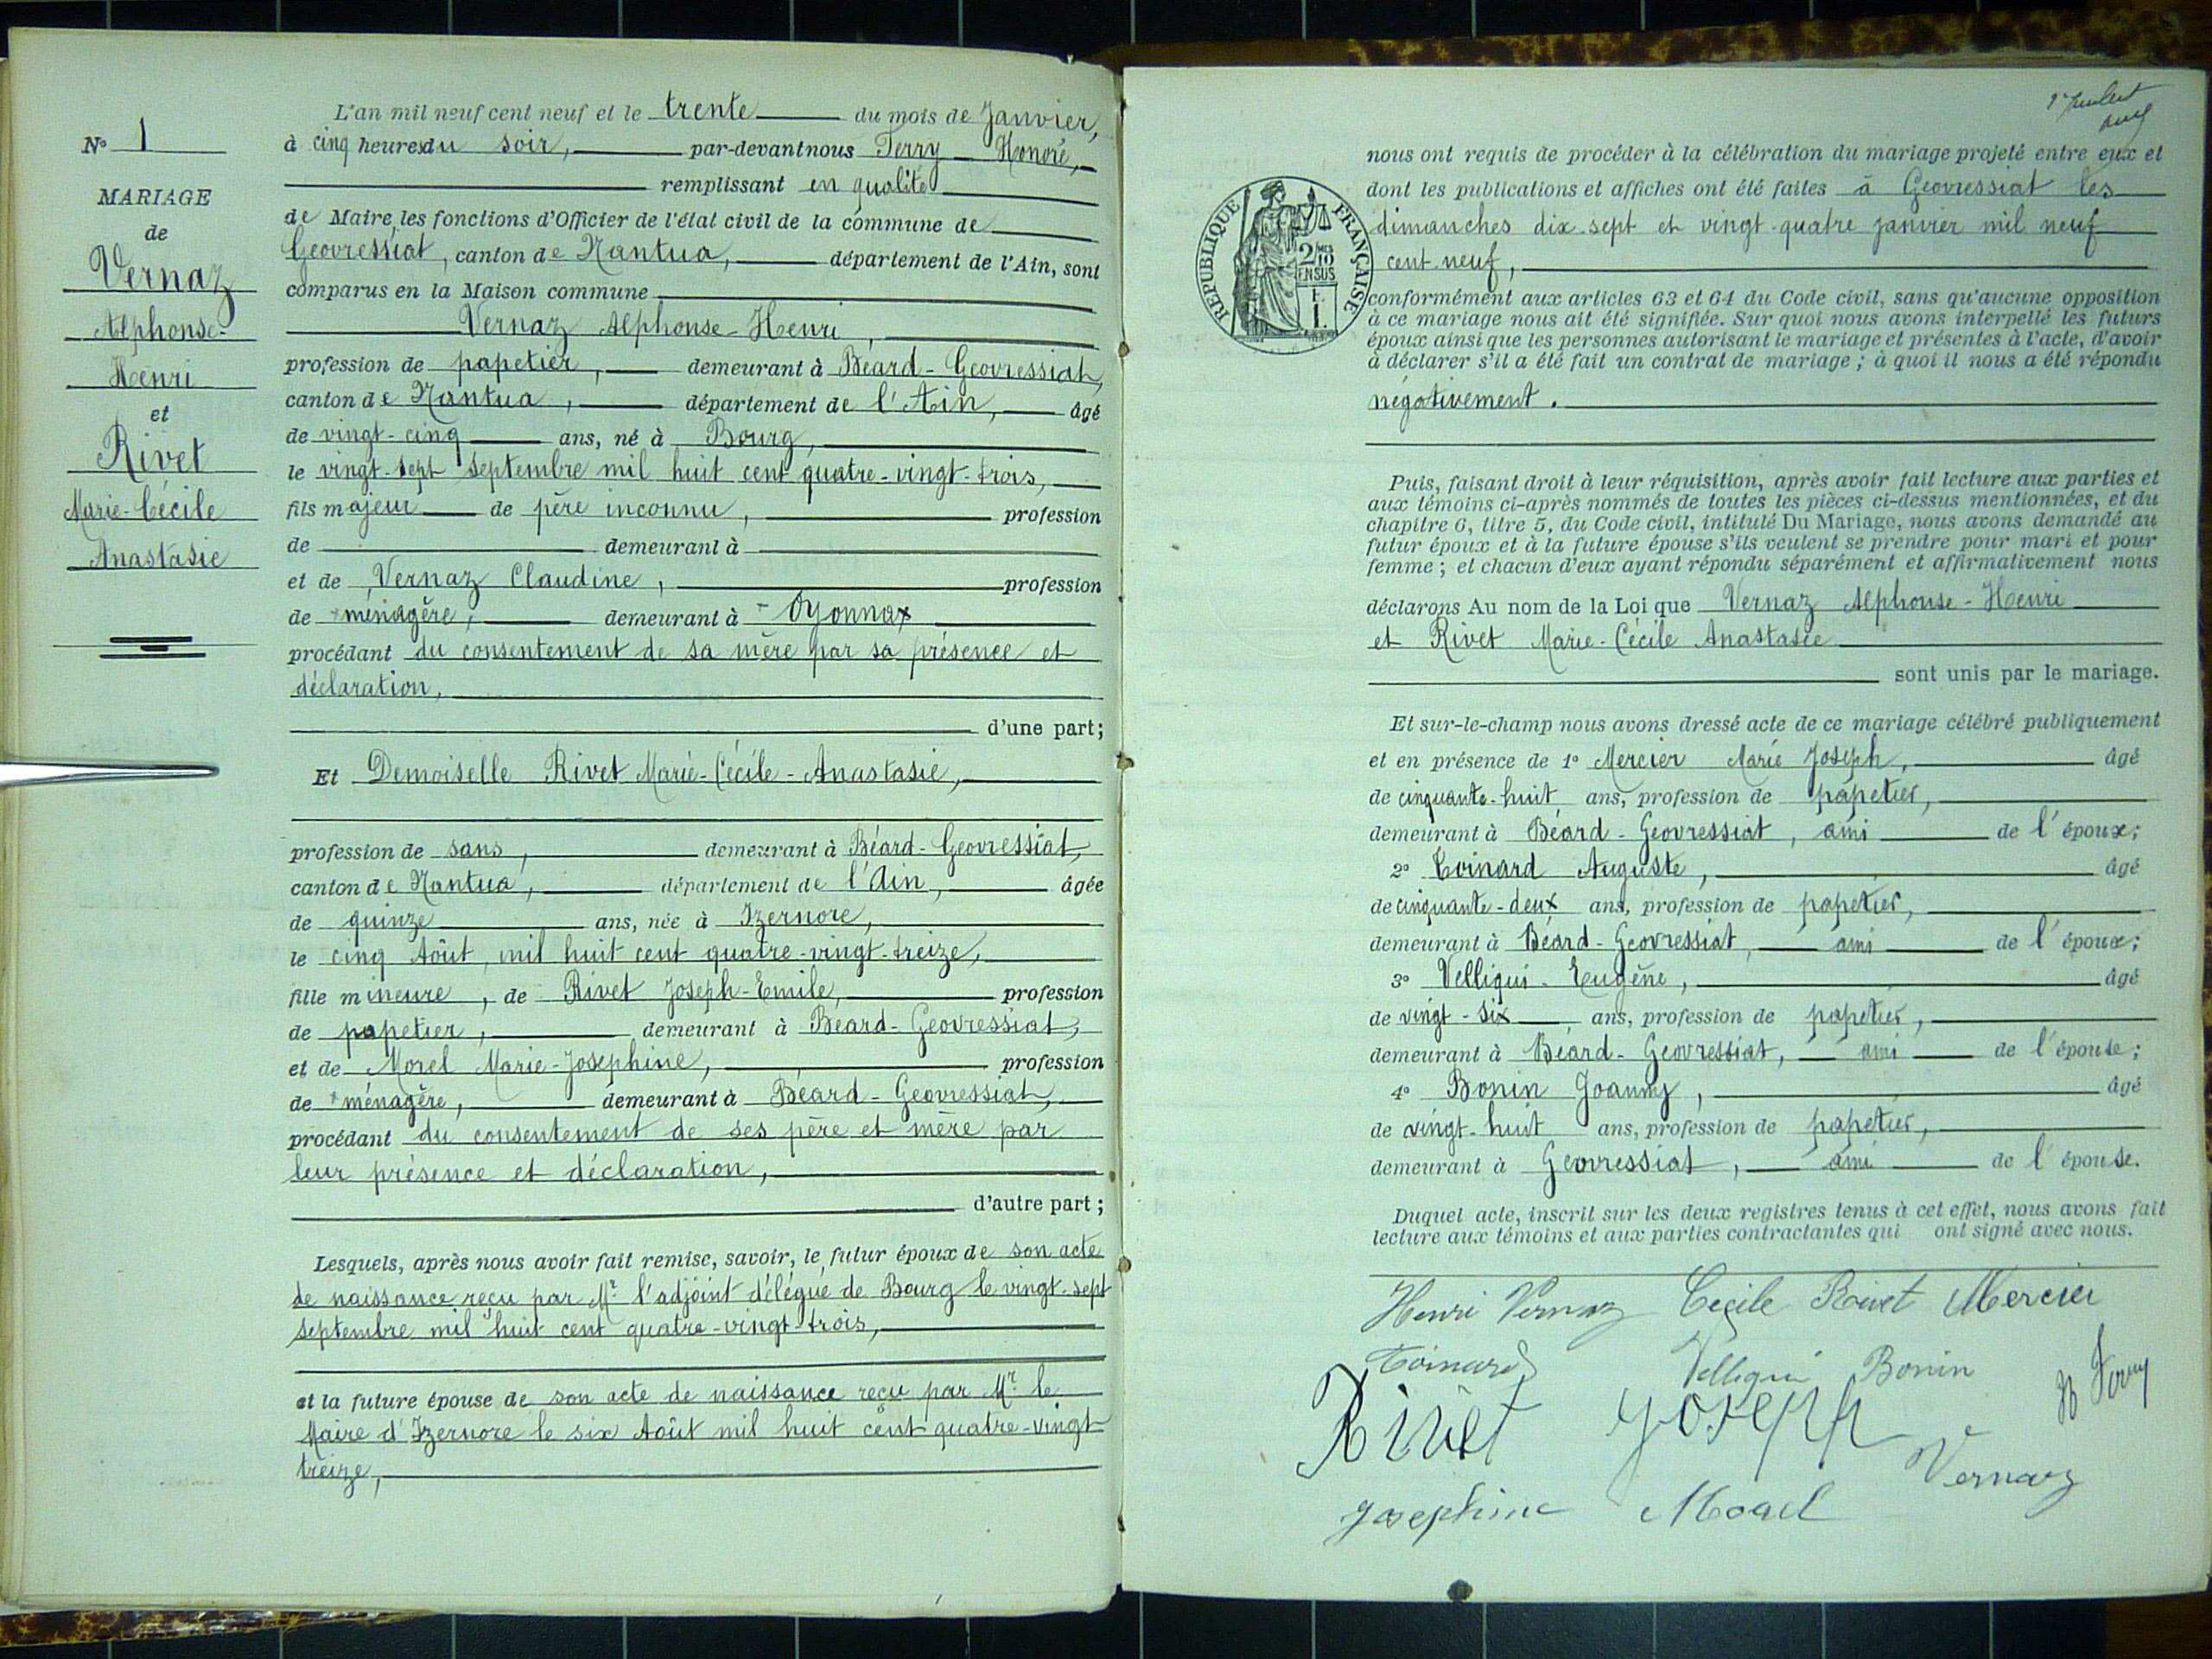 N° 1
MARIAGE
de
Vernaz
Alphonse-
Henri
et
Rivet
Marie-Cécile
Anastasie
L'an mil neuf cent neuf et le trente du mois de Janvier,
à cinq heures du soir, par-devant nous Ferry Honoré,
remplissant en qualité
de Maire, les fonctions d'Officier de l'état civil de la commune de
Geovressiat, canton de Nantua, département de l'Ain, sont
comparus en la Maison commune
Vernaz Alphonse-Henri,
profession de papetier, demeurant à Béard-Geovressiat,
canton de Nantua, département de l'Ain, âgé
de vingt-cinq ans, né à Bourg,
le vingt-sept septembre mil huit cent quatre-vingt-trois,
fils majeur de père inconnu, profession
de demeurant à
et de Vernaz Claudine, profession
de ménagère, demeurant à Oyonnax
procédant du consentement de sa mère par sa présence et
déclaration,
d'une part;
Et Demoiselle Rivet Marie-Cécile-Anastasie,
profession de sans, demeurant à Béard-Geovressiat,
canton de Nantua, département de l'Ain, âgée
de quinze ans, née à Izernore,
le cinq Août, mil huit cent quatre-vingt-treize,
fille mineure, de Rivet Joseph-Emile, profession
de papetier, demeurant à Béard-Geovressiat,
et de Morel Marie-Josephine, profession
de ménagère, demeurant à Béard-Geovressiat,
procédant du consentement de ses père et mère par
leur présence et déclaration,
d'autre part;
Lesquels, après nous avoir fait remise, savoir, le futur époux de son acte
de naissance reçu par Mr l'adjoint délégué de Bourg le vingt-sept
septembre mil huit cent quatre-vingt-trois,
et la future épouse de son acte de naissance reçu par Mr le
Maire d'Izernore le six Août mil huit cent quatre-vingt
treize,
nous ont requis de procéder à la célébration du mariage projeté entre eux et
dont les publications et affiches ont été faites à Geovressiat les
dimanches dix-sept et vingt-quatre janvier mil neuf
cent neuf,
RÉPUBLIQUE FRANÇAISE
2/10 MES
EN SUS
conformément aux articles 63 et 64 du Code civil, sans qu'aucune opposition
à ce mariage nous ait été signifiée. Sur quoi nous avons interpellé les futurs
époux ainsi que les personnes autorisant le mariage et présentes à l'acte, d'avoir
à déclarer s'il a été fait un contrat de mariage; à quoi il nous a été répondu
négativement.
Puis, faisant droit à leur réquisition, après avoir fait lecture aux parties et
aux témoins ci-après nommés de toutes les pièces ci-dessus mentionnées, et du
chapitre 6, titre 5, du Code civil, intitulé Du Mariage, nous avons demandé au
futur époux et à la future épouse s'ils veulent se prendre pour mari et pour
femme; et chacun d'eux ayant répondu séparément et affirmativement nous
déclarons Au nom de la Loi que Vernaz Alphonse-Henri
et Rivet Marie-Cécile Anastasie
sont unis par le mariage.
Et sur-le-champ nous avons dressé acte de ce mariage célébré publiquement
et en présence de 1° Mercier Marie Joseph, âgé
de cinquante-huit ans, profession de papetier,
demeurant à Béard-Geovressiat, ami de l'époux;
2° Coinard Auguste, âgé
de cinquante-deux ans, profession de papetier,
demeurant à Béard-Geovressiat, ami de l'époux;
3° Velliqui-Eugène, âgé
de vingt-six ans, profession de papetier,
demeurant à Béard-Geovressiat, ami de l'épouse;
4° Bonin Joanny, âgé
de vingt-huit ans, profession de papetier,
demeurant à Geovressiat, ami de l'épouse.
Duquel acte, inscrit sur les deux registres tenus à cet effet, nous avons fait
lecture aux témoins et aux parties contractantes qui ont signé avec nous.
Henri Vernaz Cécile Rivet Mercier
Coinard Velliqui Bonin H Ferry
Rivet Joseph
Vernaz
Josephine Morel